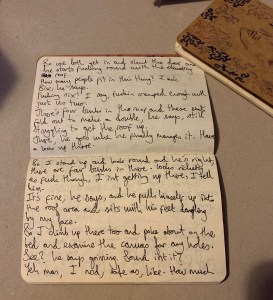 So we both get in and shut the door and
he starts fucking round with the
roof
How many people fit in this thing? I ask.
Six, he says.
Fucking six! I say, fuckin cramped enough with
just us two.
There's four bunks in the roof and these seats
fold out to make a double, he says, still
struggling to get the roof up.
There, he goes when he finally manages it. Have
a look up there.
So I stand up and look round and he's right,
there are four bunks in there - looks
as fuck though, I int getting up there, I tell
him.
It's fine, he says, and he pulls himself up into
the roof area and sits with his feet dangling
by my face.
So I climb up there too and poke about on the
bed and examine the canvas for any holes.
See? he says grinning. Sound int it?
Yeh man, I nod, safe as, like. How much